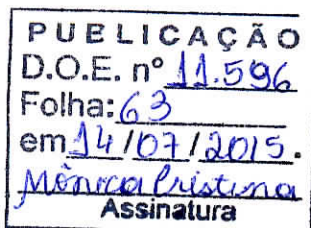 PUBLICAÇÃO
D.O.E. nº 11.596
Folha: 63
em 14/07/2015.
Mônica Cristina
Assinatura